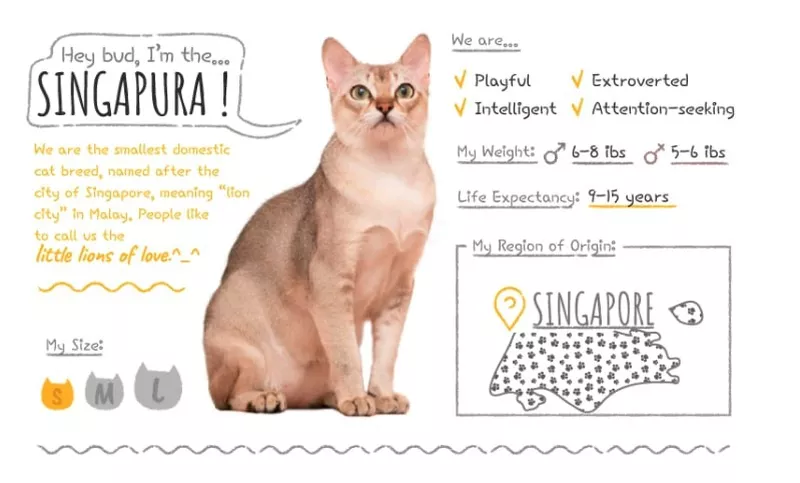 Hey bud, I'm the...
SINGAPURA !
We are the smallest domestic
cat breed, named after the
city of Singapore, meaning “lion
city” in Malay. People like
to call us the
little lions of love.^_^
My Size:
S M L
We are...
Playful
Extroverted
Intelligent
Attention-seeking
My Weight: ♂ 6-8 lbs ♂ 5-6 lbs
Life Expectancy: 9-15 years
My Region of Origin:
SINGAPORE